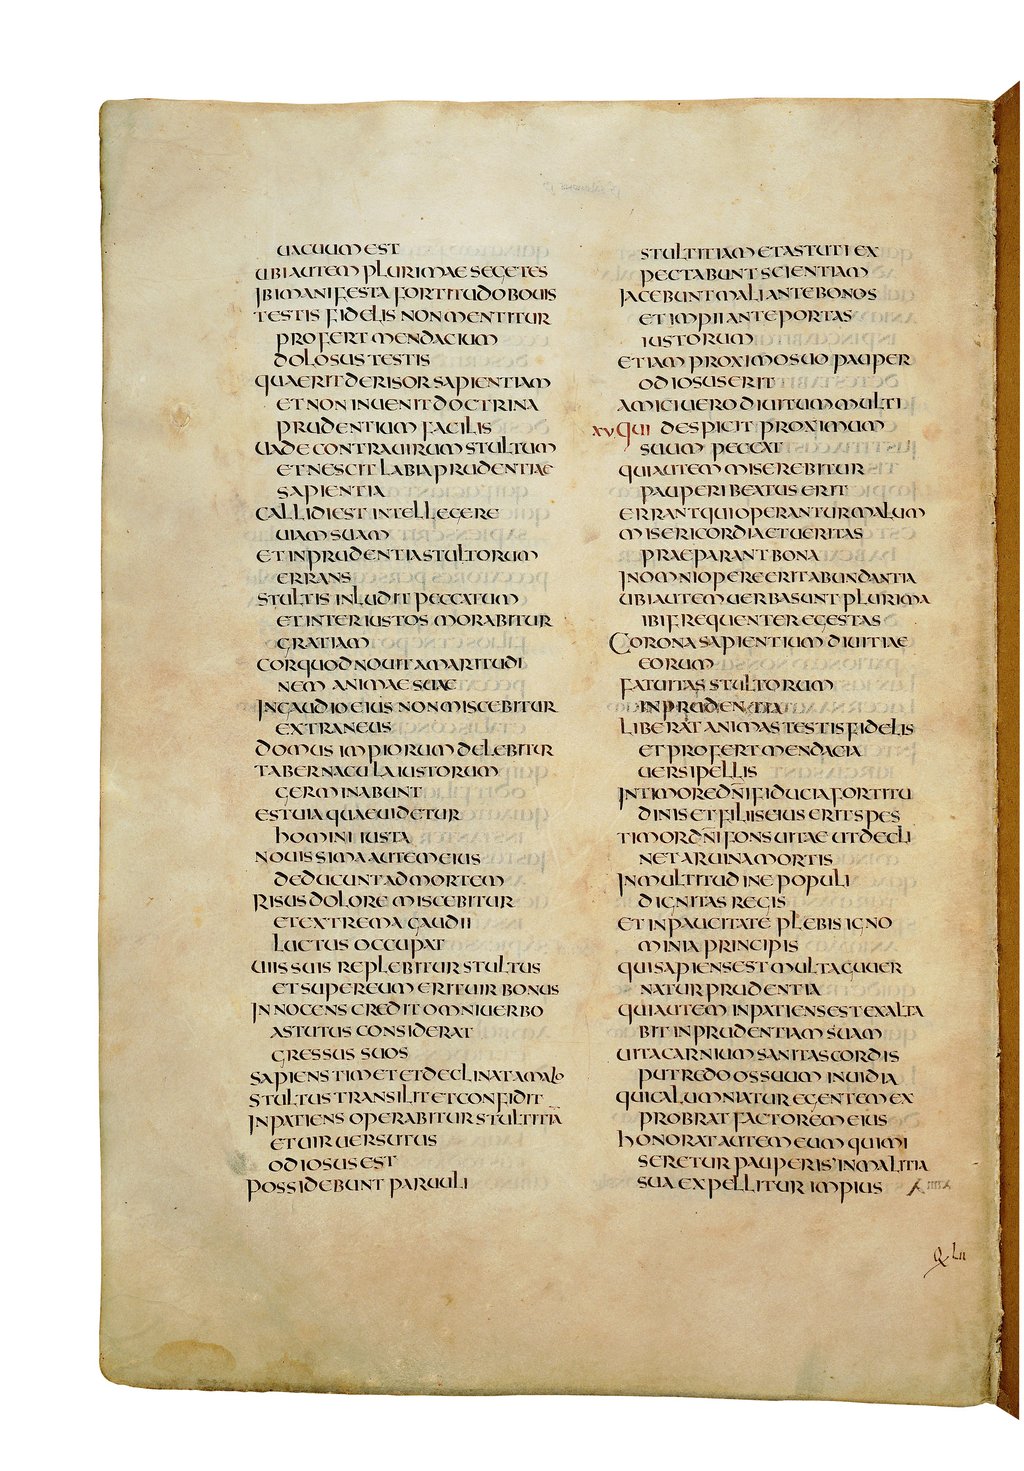 UACUUM EST
UBI AUTEM PLURIMAE SEGETES
IBI MANIFESTA FORTITUDO BOUIS
TESTIS FIDELIS NON MENTITUR
PROFERT MENDACIUM
DOLOSUS TESTIS
QUAERIT DERISOR SAPIENTIAM
ET NON INUENIT DOCTRINA
PRUDENTIUM FACILIS
UADE CONTRA UIRUM STULTUM
ET NESCIT LABIA PRUDENTIAE
SAPIENTIA
CALLIDI EST INTELLEGERE
UIAM SUAM
ET INPRUDENTIA STULTORUM
ERRANS
STULTIS INLUDIT PECCATUM
ET INTER IUSTOS MORABITUR
GRATIAM
COR QUOD NOUIT AMARITUDI
NEM ANIMAE SUAE
IN GAUDIO EIUS NON MISCEBITUR
EXTRANEUS
DOMUS IMPIORUM DELEBITUR
TABERNACULA IUSTORUM
GERMINABUNT
EST UIA QUAE UIDETUR
HOMINI IUSTA
NOUISSIMA AUTEM EIUS
DEDUCUNT AD MORTEM
RISUS DOLORE MISCEBITUR
ET EXTREMA GAUDII
LUCTUS OCCUPAT
UIIS SUIS REPLEBITUR STULTUS
ET SUPER EUM ERIT UIR BONUS
INNOCENS CREDIT OMNI UERBO
ASTUTUS CONSIDERAT
GRESSUS SUOS
SAPIENS TIMET ET DECLINAT A MALO
STULTUS TRANSILIT ET CONFIDIT
INPATIENS OPERABITUR STULTITIĀ
ET UIR UERSUTUS
ODIOSUS EST
POSSIDEBUNT PARUULI
STULTITIAM ET ASTUTI EX
PECTABUNT SCIENTIAM
IACEBUNT MALI ANTE BONOS
ET IMPII ANTE PORTAS
IUSTORUM
ETIAM PROXIMO SUO PAUPER
ODIOSUS ERIT
AMICI UERO DIUITUM MULTI
XV QUI DESPICIT PROXIMUM
SUUM PECCAT
QUI AUTEM MISEREBITUR
PAUPERI BEATUS ERIT
ERRANT QUI OPERANTUR MALUM
MISERICORDIA ET UERITAS
PRAEPARANT BONA
IN OMNI OPERE ERIT ABUNDANTIA
UBI AUTEM UERBA SUNT PLURIMA
IBI FREQUENTER EGESTAS
CORONA SAPIENTIUM DIUITIAE
EORUM
FATUITAS STULTORUM
INPRUDENTIA
LIBERAT ANIMAS TESTIS FIDELIS
ET PROFERT MENDACIA
UERSIPELLIS
IN TIMORE DN̄I FIDUCIA FORTITU
DINIS ET FILIIS EIUS ERIT SPES
TIMOR DN̄I FONS UITAE UT DECLI
NET A RUINA MORTIS
IN MULTITUDINE POPULI
DIGNITAS REGIS
ET IN PAUCITATE PLEBIS IGNO
MINIA PRINCIPIS
QUI SAPIENS EST MULTA GUUER
NATUR PRUDENTIA
QUI AUTEM INPATIENS EST EXALTA
BIT INPRUDENTIAM SUAM
UITA CARNIUM SANITAS CORDIS
PUTREDO OSSUUM INUIDIA
QUI CALUMNIATUR EGENTEM EX
PROBRAT FACTOREM EIUS
HONORAT AUTEM EUM QUI MI
SERETUR PAUPERIS' IN MALITIA
SUA EXPELLITUR IMPIUS
Q LII